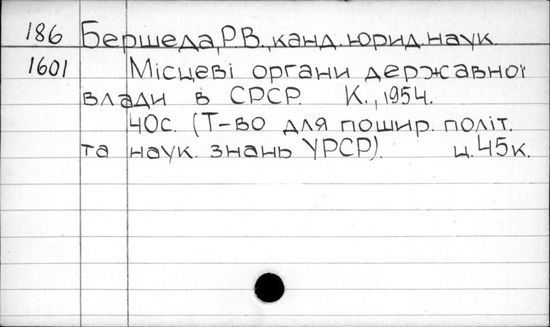 186 Бершеда, Р.В., канд. юрид. наук
1601 Місцеві органи державної
влади в СРСР. К., 1954.
40с. (Т-во для пошир. політ.
та наук. знань УРСР). ц. 45к.